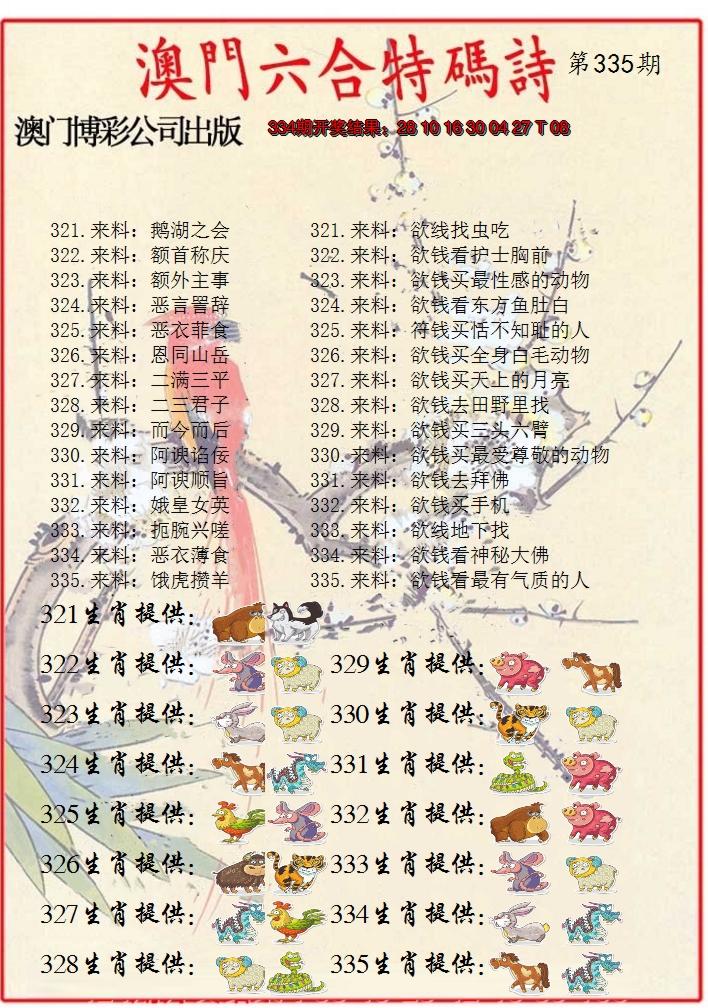 澳門六合特碼詩 第335期
澳门博彩公司出版 334期开奖结果：28 10 16 30 04 27 T 08
321.来料：鹅湖之会 321.来料：欲线找虫吃
322.来料：额首称庆 322.来料：欲钱看护士胸前
323.来料：额外主事 323.来料：欲钱买最性感的动物
324.来料：恶言詈辞 324.来料：欲钱看东方鱼肚白
325.来料：恶衣菲食 325.来料：符钱买恬不知耻的人
326.来料：恩同山岳 326.来料：欲钱买全身白毛动物
327.来料：二满三平 327.来料：欲钱买天上的月亮
328.来料：二三君子 328.来料：欲钱去田野里找
329.来料：而今而后 329.来料：欲钱买三头六臂
330.来料：阿谀谄佞 330.来料：欲钱买最爱尊敬的动物
331.来料：阿谀顺旨 331.来料：欲钱去拜佛
332.来料：娥皇女英 332.来料：欲钱买手机
333.来料：扼腕兴嗟 333.来料：欲线地下找
334.来料：恶衣薄食 334.来料：欲钱看神秘大佛
335.来料：饿虎攒羊 335.来料：欲钱看最有气质的人
321生肖提供：
322生肖提供： 329生肖提供：
323生肖提供： 330生肖提供：
324生肖提供： 331生肖提供：
325生肖提供： 332生肖提供：
326生肖提供： 333生肖提供：
327生肖提供： 334生肖提供：
328生肖提供： 335生肖提供：